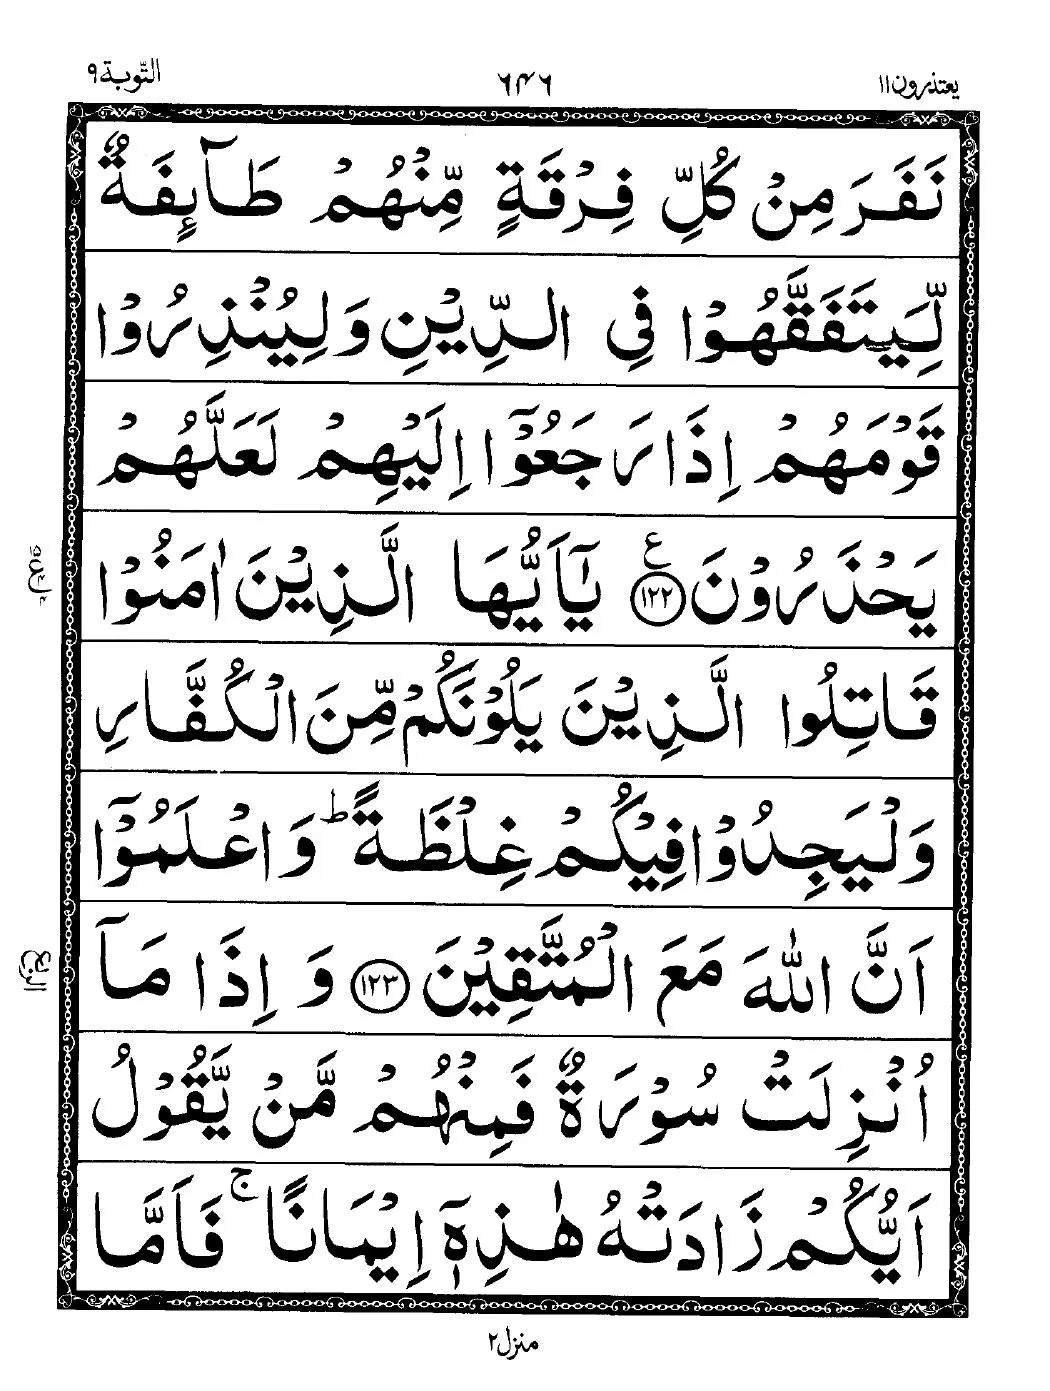 يعتذرون ١١
٦٤٦
التّوبة ٩
نَفَرَ مِنْ كُلِّ فِرْقَةٍ مِّنْهُمْ طَآىِٕفَةٌ
لِّيَتَفَقَّهُوْا فِي الدِّيْنِ وَلِيُنْذِرُوْا
قَوْمَهُمْ اِذَا رَجَعُوْٓا اِلَيْهِمْ لَعَلَّهُمْ
يَحْذَرُوْنَ ﴿١٢٢﴾ ع يٰٓاَيُّهَا الَّذِيْنَ اٰمَنُوْا
قَاتِلُوا الَّذِيْنَ يَلُوْنَكُمْ مِّنَ الْكُفَّارِ
وَلْيَجِدُوْا فِيْكُمْ غِلْظَةً ؕ وَاعْلَمُوْٓا
اَنَّ اللّٰهَ مَعَ الْمُتَّقِيْنَ ﴿١٢٣﴾ وَاِذَا مَآ
الربع
اُنْزِلَتْ سُوْرَةٌ فَمِنْهُمْ مَّنْ يَّقُوْلُ
اَيُّكُمْ زَادَتْهُ هٰذِهٖٓ اِيْمَانًا ۚ فَاَمَّا
منزل ٢